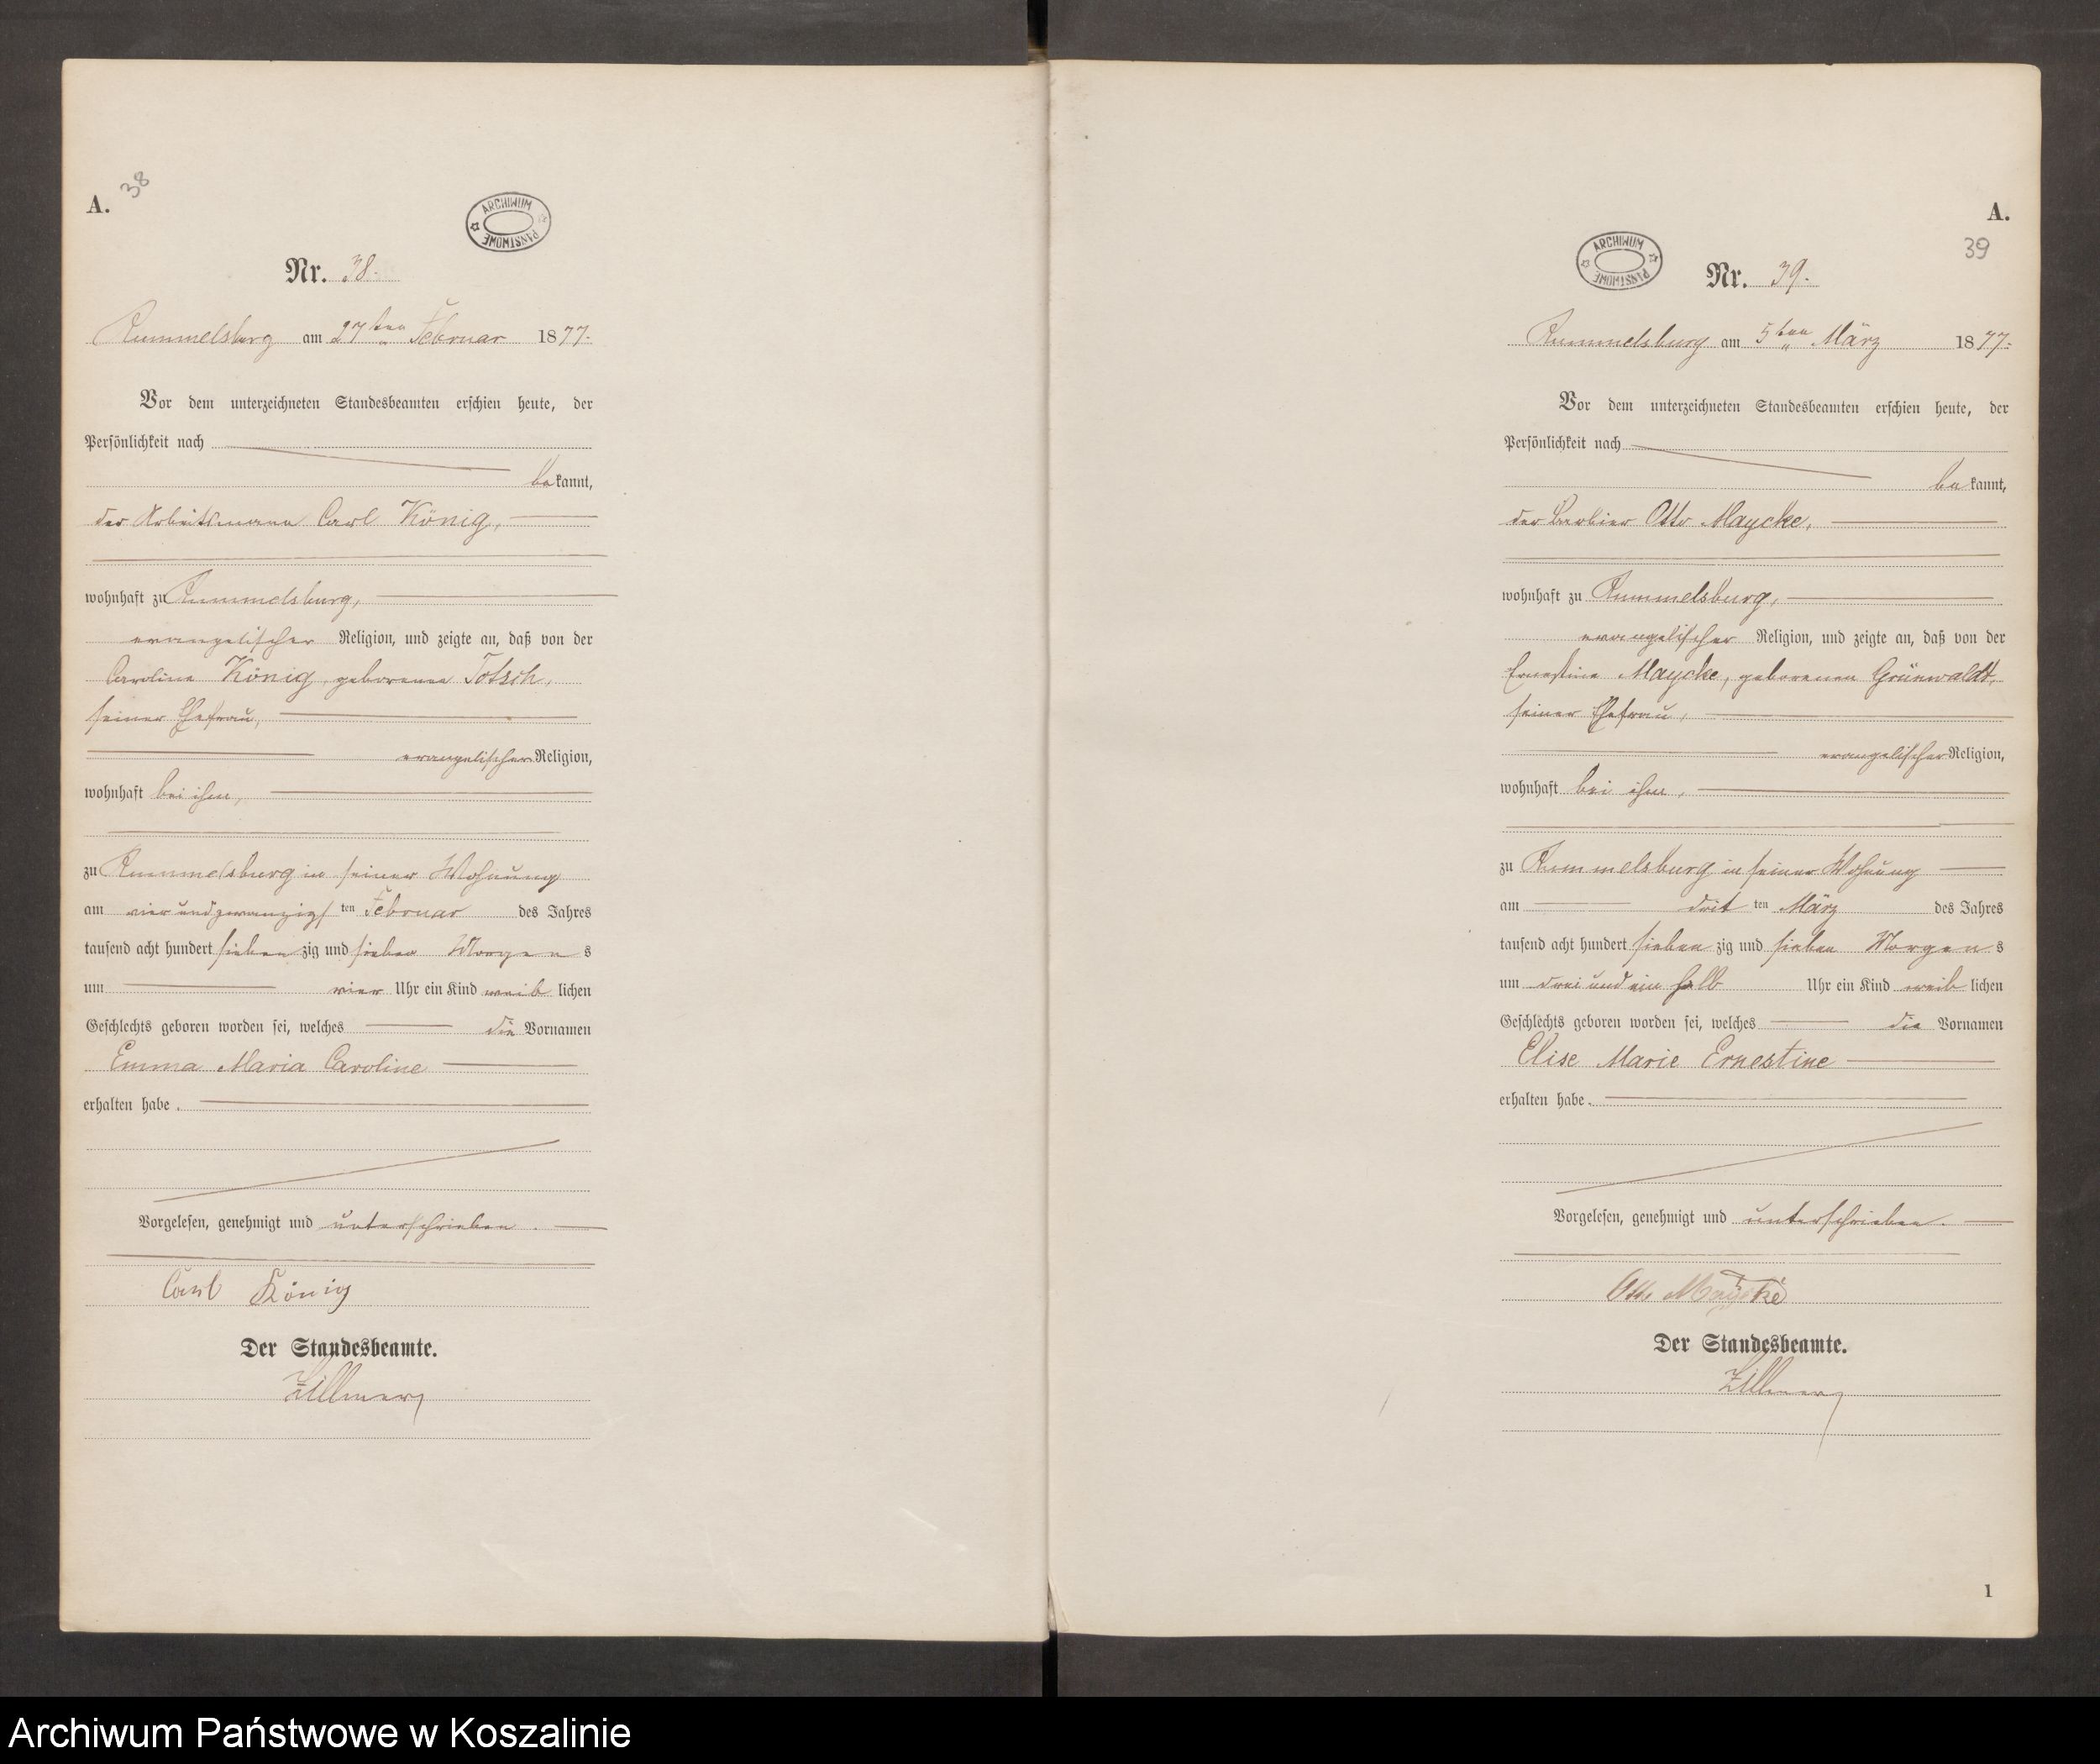 A.
38
ARCHIWUM PAŃSTWOWE
Nr. 38.
Rummelsburg am 27ten Februar 1877.
Vor dem unterzeichneten Standesbeamten erschien heute, der
Persönlichkeit nach
bekannt,
der Arbeitsmann Carl König,
wohnhaft zu Rummelsburg,
evangelischer Religion, und zeigte an, daß von der
Caroline König, geborenen Totsch,
seiner Ehefrau,
evangelischer Religion,
wohnhaft bei ihm,
zu Rummelsburg in seiner Wohnung
am vierundzwanzigsten Februar des Jahres
tausend acht hundert siebenzig und sieben Morgens
um vier Uhr ein Kind weiblichen
Geschlechts geboren worden sei, welches die Vornamen
Emma Maria Caroline
erhalten habe.
Vorgelesen, genehmigt und unterschrieben.
Carl König
Der Standesbeamte.
Zillmer
A.
39
ARCHIWUM PAŃSTWOWE
Nr. 39.
Rummelsburg am 5ten März 1877.
Vor dem unterzeichneten Standesbeamten erschien heute, der
Persönlichkeit nach
bekannt,
der Barbier Otto Maycke,
wohnhaft zu Rummelsburg,
evangelischer Religion, und zeigte an, daß von der
Ernestine Maycke, geborenen Grünwaldt,
seiner Ehefrau,
evangelischer Religion,
wohnhaft bei ihm,
zu Rummelsburg in seiner Wohnung
am dritten März des Jahres
tausend acht hundert siebenzig und sieben Morgens
um drei und ein halb Uhr ein Kind weiblichen
Geschlechts geboren worden sei, welches die Vornamen
Elise Marie Ernestine
erhalten habe.
Vorgelesen, genehmigt und unterschrieben.
Otto Maycke
Der Standesbeamte.
Zillmer
1
Archiwum Państwowe w Koszalinie